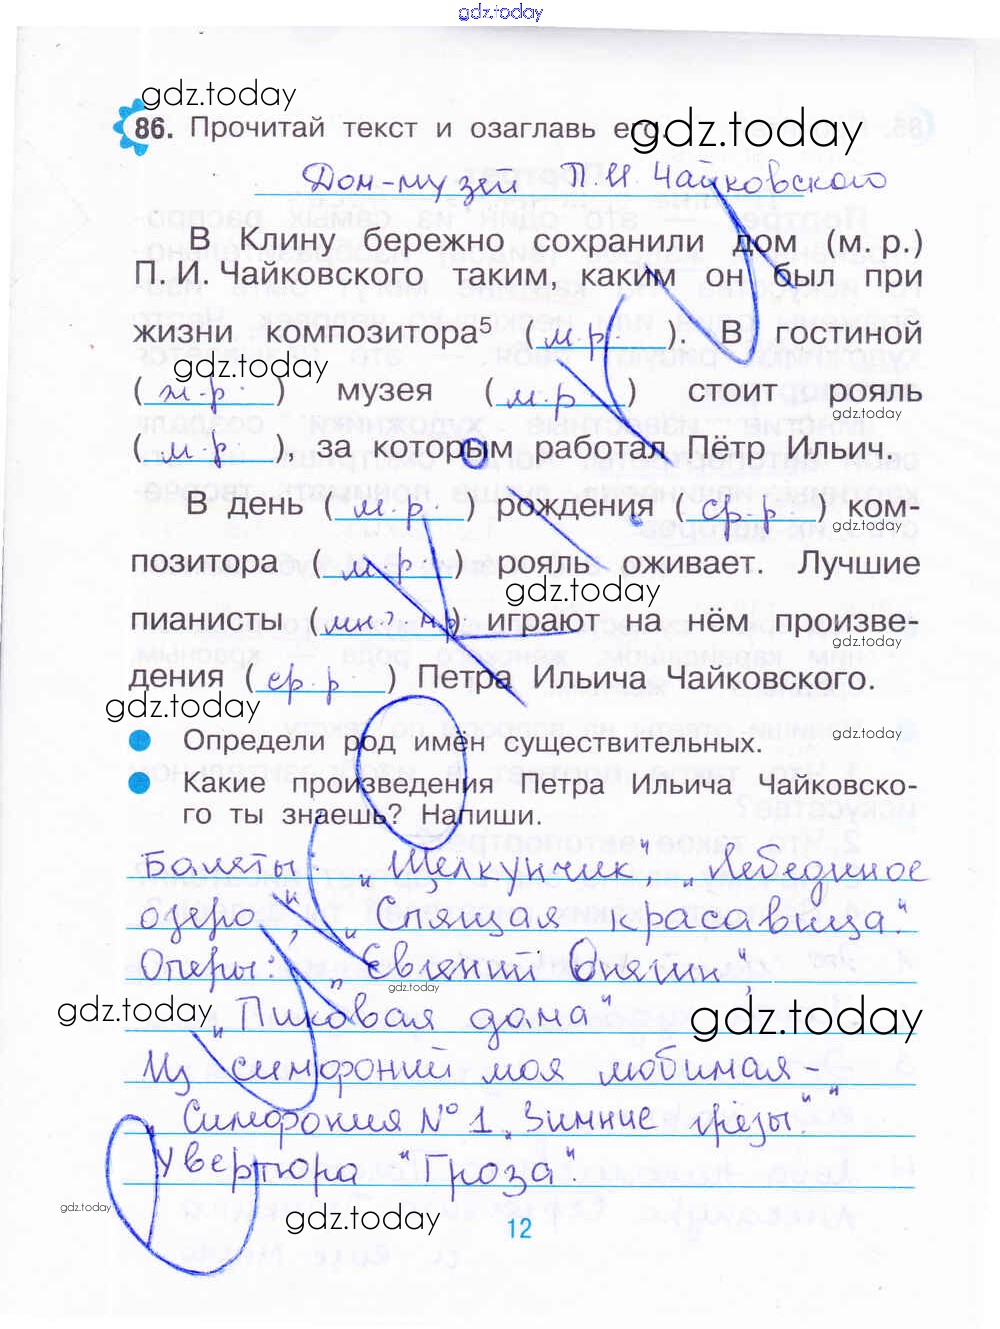 gdz.today
gdz.today
86. Прочитай текст и озаглавь его.
gdz.today
Дом-музей П.И. Чайковского
В Клину бережно сохранили дом (м. р.)
П. И. Чайковского таким, каким он был при
жизни композитора⁵ (м.р.). В гостиной
gdz.today
(ж.р.) музея (м.р) стоит рояль
gdz.today
(м.р.), за которым работал Пётр Ильич.
В день (м.р.) рождения (ср.р.) ком-
gdz.today
позитора (м.р.) рояль оживает. Лучшие
gdz.today
пианисты (мн?. м.р) играют на нём произве-
gdz.today
дения (ср.р.) Петра Ильича Чайковского.
gdz.today
gdz.today
Определи род имён существительных.
Какие произведения Петра Ильича Чайковско-
го ты знаешь? Напиши.
Балеты: „Щелкунчик", „Лебединое
озеро", „Спящая красавица".
Оперы: „Евгений Онегин",
gdz.today
„Пиковая дама"
gdz.today
gdz.today
Из симфоний моя любимая -
„Симфония №1 „Зимние грёзы"."
Увертюра "Гроза".
gdz.today
gdz.today
12